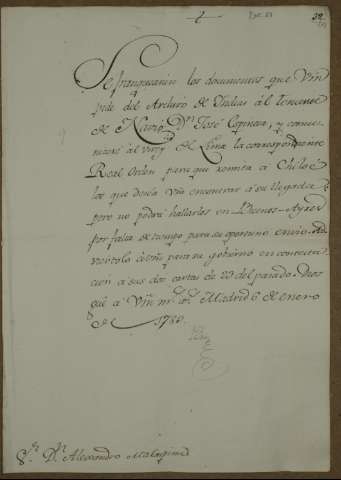 Se franquearán los documentos que Vm
pide del Archivo de Indias ál Teniente
de Navio Dn José Espinosa, y comu-
nicaré ál virrey de Lima la correspondiente
Real Orden para que remita á Chiloé
los que desea Vm encontrar á su llegada
pero no podrá hallarlos en Buenos-Ayres
por falta de tiempo para su oportuno envio. Ad-
viertolo á Vm para su gobierno en contesta-
cion á sus dos cartas de 23 del pasado. Dios
gue á Vm ms as Madrid 6 de enero
de 1789.
Sr Dn Alexandro Malaspina